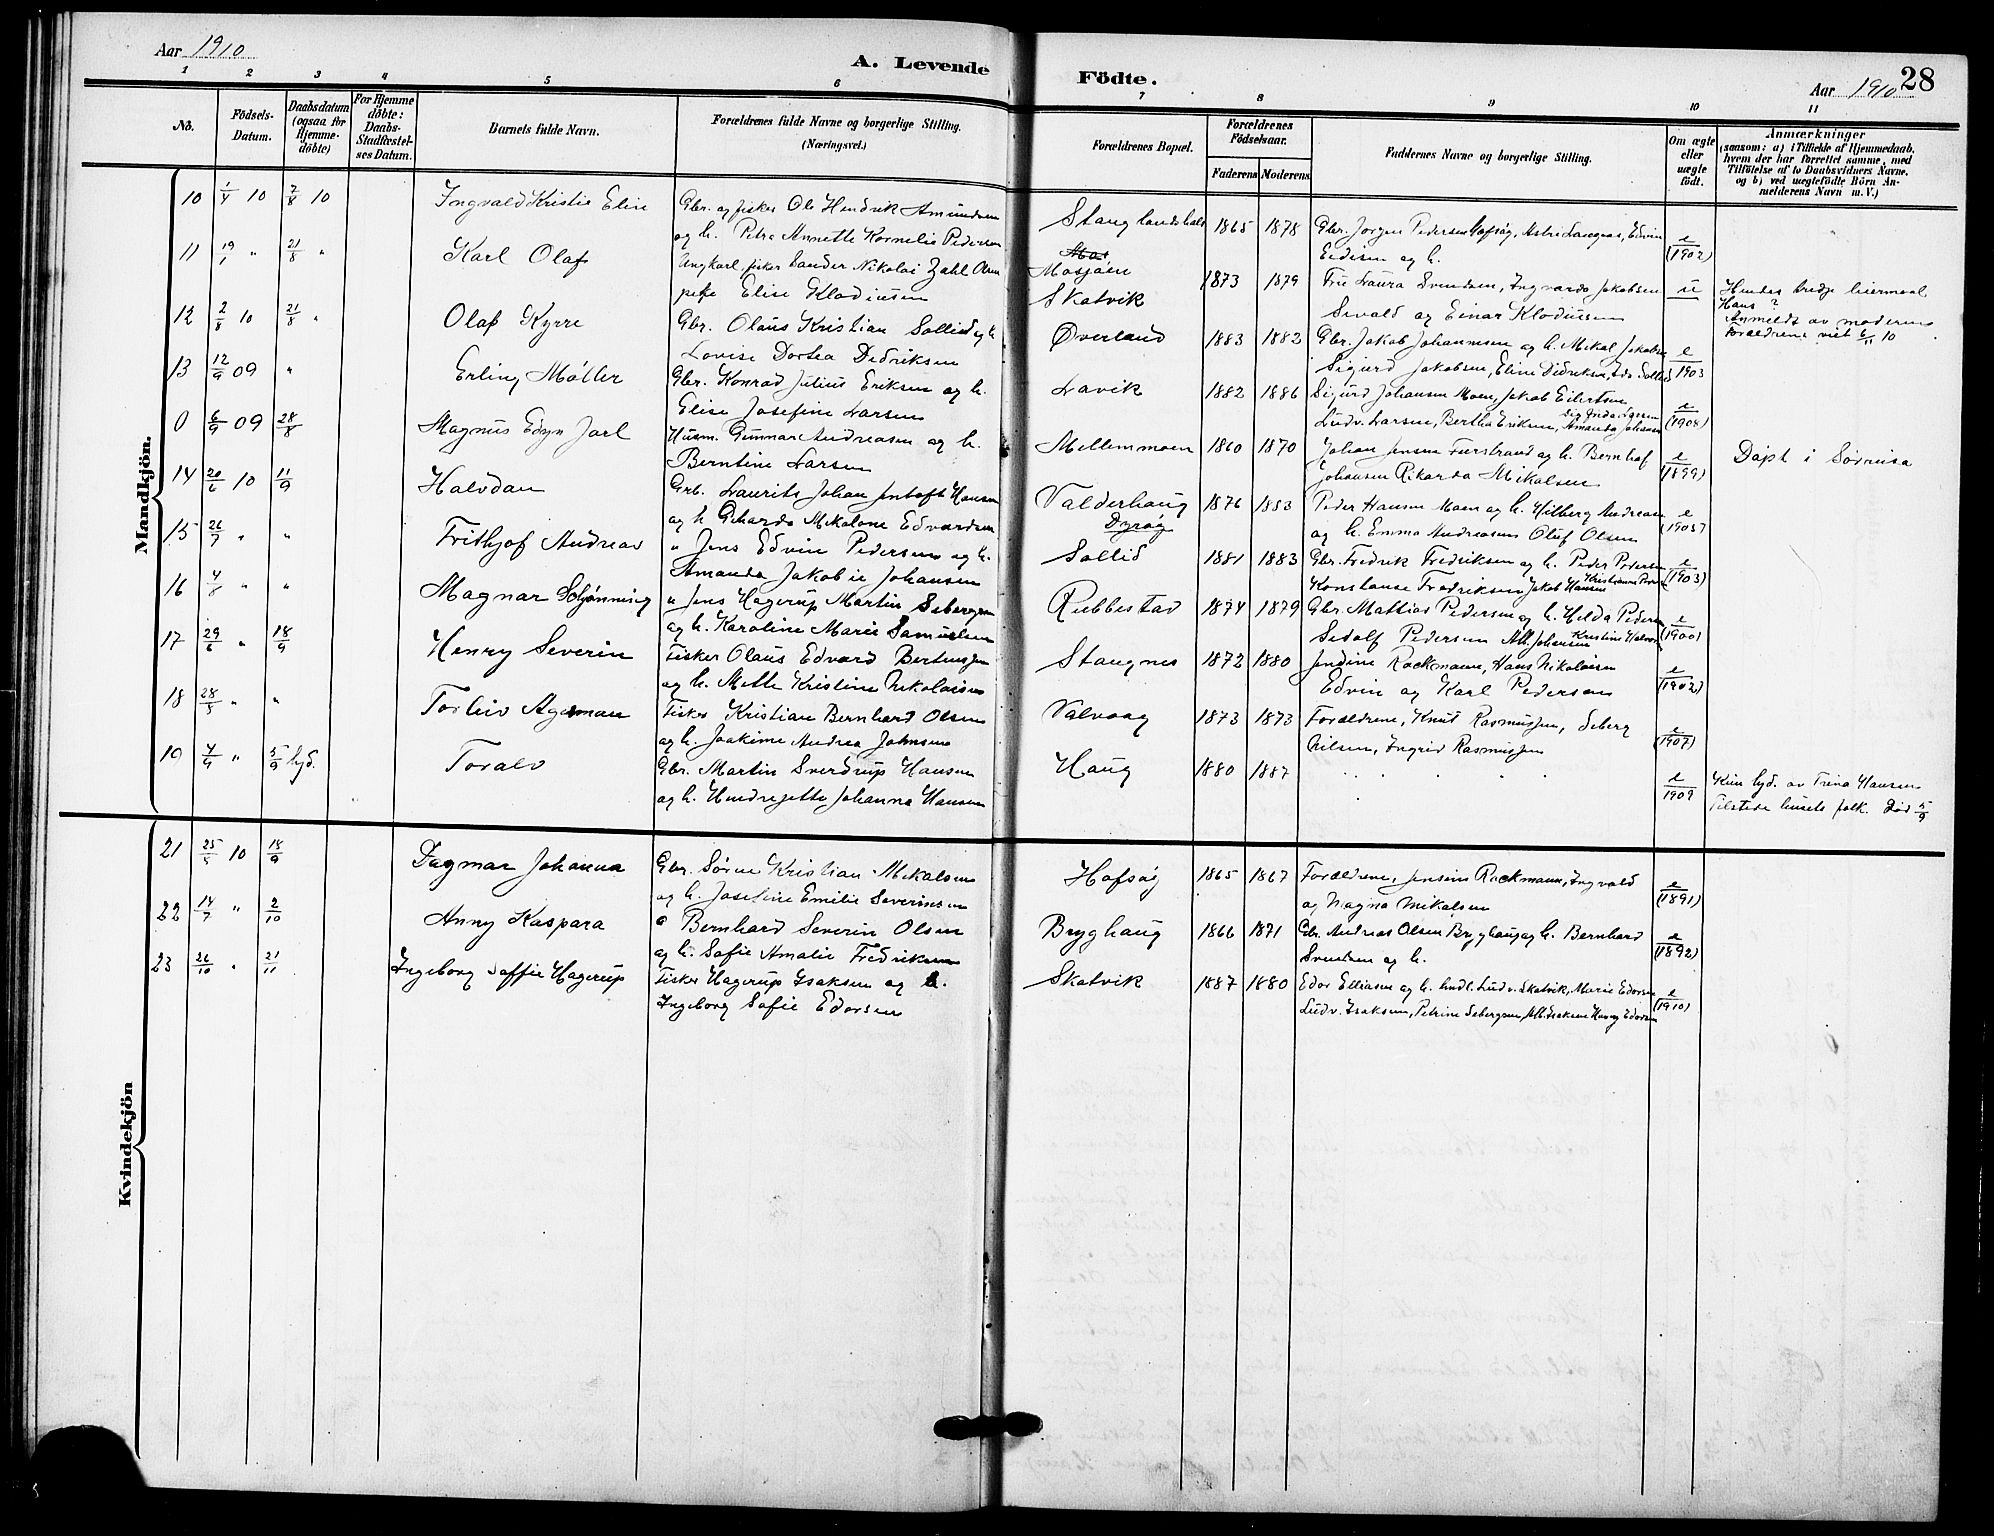 Aar 1910
A. Levende Födte.
Aar 1910
28
1 2 3 4 5 6 7 8 9 10 11
No.
Födsels-Datum.
Daabsdatum (ogsaa for Hjemme-döbte)
For Hjemme döbte: Daabs-Stadfæstelses Datum.
Barnets fulde Navn.
Forældrenes fulde Navne og borgerlige Stilling. (Næringsvei.)
Forældrenes Bopæl.
Forældrenes Födselsaar.
Faderens Moderens
Faddernes Navne og borgerlige Stilling.
Om ægte eller uægte födt.
Anmærkninger
(saasom: a) i Tilfælde af Hjemmedaab,
hvem der har forrettet samme, med
Tilföielse af to Daabsvidners Navne,
og b) ved uægtefödte Börn An-
melderens Navn m. V.)
Mandkjön.
10 1/4 10 7/8 10 Ingvald Kristie Elise Gbr. og fisker Ole Hendrik Amundsen Stanglandshals 1865 1878 Gbr. Jorgen Pedersen Hofsøy, Astri Langaas, Edvin
og h. Petra Annette Kornelie Pedersen Eidisen og h. e (1902)
11 19/1 " 21/8 " Karl Olaf Ungkarl, fisker Sander Nikolai Zahl Olsen Mosjøen 1873 1879 Fru Laura Svendsen, Ingvarda Jakobsen u Hendes tredje leiermaal
pike Elise Klodiusen Skatvik Sivald og Einar Klodiusen Hans ?
Anmeldt av moderen
Forældrene viet 6/11 10
12 2/8 10 21/8 " Olaf Kyrre Gbr. Olaus Kristian Sollid og h. Øverland 1883 1882 Gbr. Jakob Johannesen og h. Mikal Jakobsen
Lovise Dortea Dedriksen Sigurd Jakobsen, Eline Didriksen, Ida Sollid e 1903
13 12/9 09 " Erling Møller Gbr. Konrad Julius Eriksen og h. Lavik 1882 1886 Sigurd Johansen Moen, Jakob Eilertsen
Elise Josefine Larsen Ludv. Larsen, Bertha Eriksen, Amanda Johansen e (1908)
0 6/9 09 28/8 Magnus Edyn Jarl Husm. Gunnar Andreasen og h. Mellemmoen 1860 1870 Johan Jensen Furstrand og h. Bernhof Døpt i Sørreisa
Berntine Larsen Johansen Rikarda Mikalsen e (1899)
14 20/6 10 11/9 Halvdan Grb. Laurits Johan Jentoft Hansen Valderhaug 1876 1883 Peder Hansen Moen og h. Hilberg Andreasen
og h Geharda Mikaline Edvardsen Dyrøy og h. Emma Andreasen Oluf Olsen e (1905)
15 26/7 " " Frithjof Andreas " Jens Edvin Pedersen og h. Sollid 1881 1883 Gbr. Fredrik Fredriksen og h. Peder Pedersen
Amanda Jakobie Johansen Konstanse Fredriksen Jakob Hansen e (1903)
16 4/8 " " Magnar Schjønning " Jens Hagerup Martin Sebergsen Rubbestad 1874 1879 Gbr. Mattias Pedersen og h. Helda Pedersen
og h. Karoline Marie Samuelsen Sedolf Pedersen Alb. Johansen e (1900)
17 29/6 " 18/9 Henry Severin Fisker Olaus Edvard Bertussen Stangnes 1872 1880 Jendine Rackmann, Hans Nikolaisen
og h. Mette Kristine Nikolaisen Edvin og Karl Pedersen e (1902)
18 28/5 " " Torleiv Agerman Fisker Kristian Bernhard Olsen Valvaag 1873 1873 Forældrene, Knut Rasmussen, Seberg
og h. Joakime Andrea Johnsen Nilsen, Ingrid Rasmussen e (1907)
19 4/9 " 5/9 hjd. Toralv Gbr. Martin Sverdrup Hansen Haug 1880 1887
og h. Hendrejette Johanna Hansen e 1909 Kun hjd. av Trina Hansen
Tilstede husets folk. Død 5/9
Kvindekjön
21 25/5 10 18/9 Dagmar Johanna Gbr. Sørine Kristian Mikalsen Hofsøy 1865 1867 Forældrene, Jensine Rackmann, Ingvald
og h. Josefine Emilie Severinsen og Magna Mikalsen e (1891)
22 14/7 " 2/10 Anny Kaspara " Bernhard Severin Olsen Bryghaug 1866 1871 Gbr. Andreas Olsen Bryghaug og h. Bernhard
og h. Sofie Amalie Fredriksen Svendsen og h. e (1892)
23 26/10 " 21/11 Ingeborg Saffie Hagerup Fisker Hagerup Isaksen og h. Skatvik 1887 1880 Edor Elliasen og h. hndl. Ludv. Skatvik, Marie Edorsen
Ingeborg Sofie Edorsen Ludv. Isaksen, Petrine Sebergsen, Alb. Isaksen Harry Edorsen e (1910)